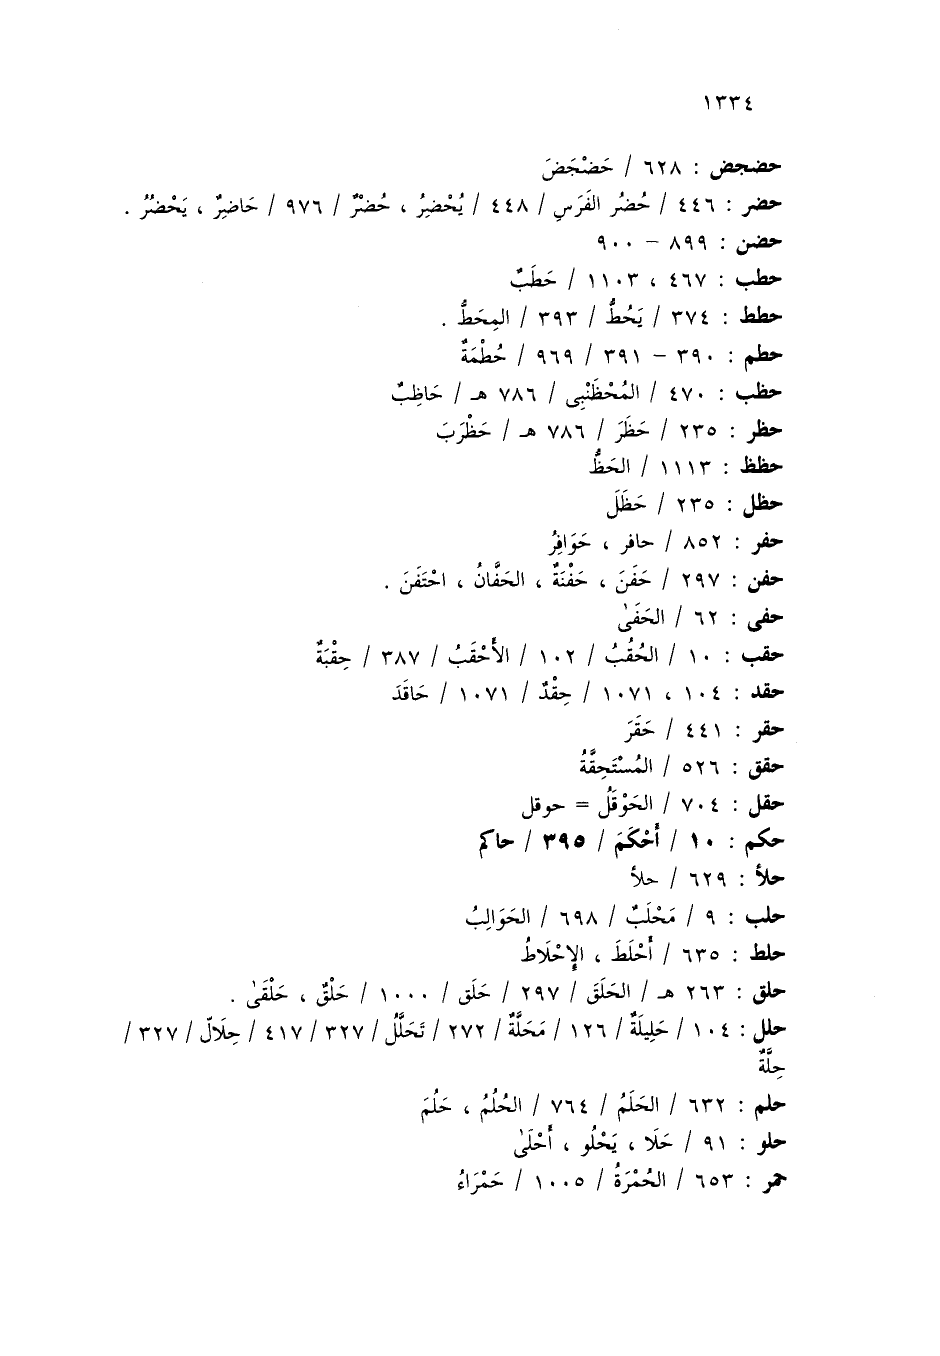 ١٣٣٤
حضجض : ٦٢٨ / حَضْجَضَ
حضر : ٤٤٦ / حُضْرُ الفَرَسِ / ٤٤٨ / يُحْضِرُ ، حُضْرٌ / ٩٧٦ / حَاضِرٌ ، يَحْضُرُ .
حضن : ٨٩٩ – ٩٠٠
حطب : ٤٦٧ ، ١١٠٣ / حَطَبٌ
حطط : ٣٧٤ / يَحُطُّ / ٣٩٣ / المِحَطُّ .
حطم : ٣٩٠ – ٣٩١ / ٩٦٩ / حُطْمَةٌ
حظب : ٤٧٠ / المُحْظَنْبِى / ٧٨٦ هـ / حَاظِبٌ
حظر : ٢٣٥ / حَظَرَ / ٧٨٦ هـ / حَظْرَبَ
حظظ : ١١١٣ / الحَظُّ
حظل : ٢٣٥ / حَظَلَ
حفر : ٨٥٢ / حافر ، حَوَافِرُ
حفن : ٢٩٧ / حَفَنَ ، حَفْنَةٌ ، الحَفَّانُ ، احْتَفَنَ .
حفى : ٦٢ / الحَفَىٰ
حقب : ١٠ / الحُقُبُ / ١٠٢ / الأَحْقَبُ / ٣٨٧ / حِقْبَةٌ
حقد : ١٠٤ ، ١٠٧١ / حِقْدٌ / ١٠٧١ / حَاقَدَ
حقر : ٤٤١ / حَقَرَ
حقق : ٥٢٦ / المُسْتَحِقَّةُ
حقل : ٧٠٤ / الحَوْقَلُ = حوقل
حكم : ١٠ / أَحْكَمَ / ٣٩٥ / حاكم
حلأ : ٦٢٩ / حلأ
حلب : ٩ / مَحْلَبٌ / ٦٩٨ / الحَوَالِبُ
حلط : ٦٣٥ / أَحْلَطَ ، الإِحْلَاطُ
حلق : ٢٦٣ هـ / الحَلَقَ / ٢٩٧ / حَلَق / ١٠٠٠ / حَلْقٌ ، حَلْقَىٰ .
حلل : ١٠٤ / حَلِيلَةٌ / ١٢٦ / مَحَلَّةٌ / ٢٧٢ / تَحَلَّلُ / ٣٢٧ / ٤١٧ / حِلَالٌ / ٣٢٧ /
حِلَّةٌ
حلم : ٦٣٢ / الحَلَمُ / ٧٦٤ / الحُلُمُ ، حَلُمَ
حلو : ٩١ / حَلَا ، يَحْلُو ، أَحْلَىٰ
حمر : ٦٥٣ / الحُمْرَةُ / ١٠٠٥ / حَمْرَاءُ